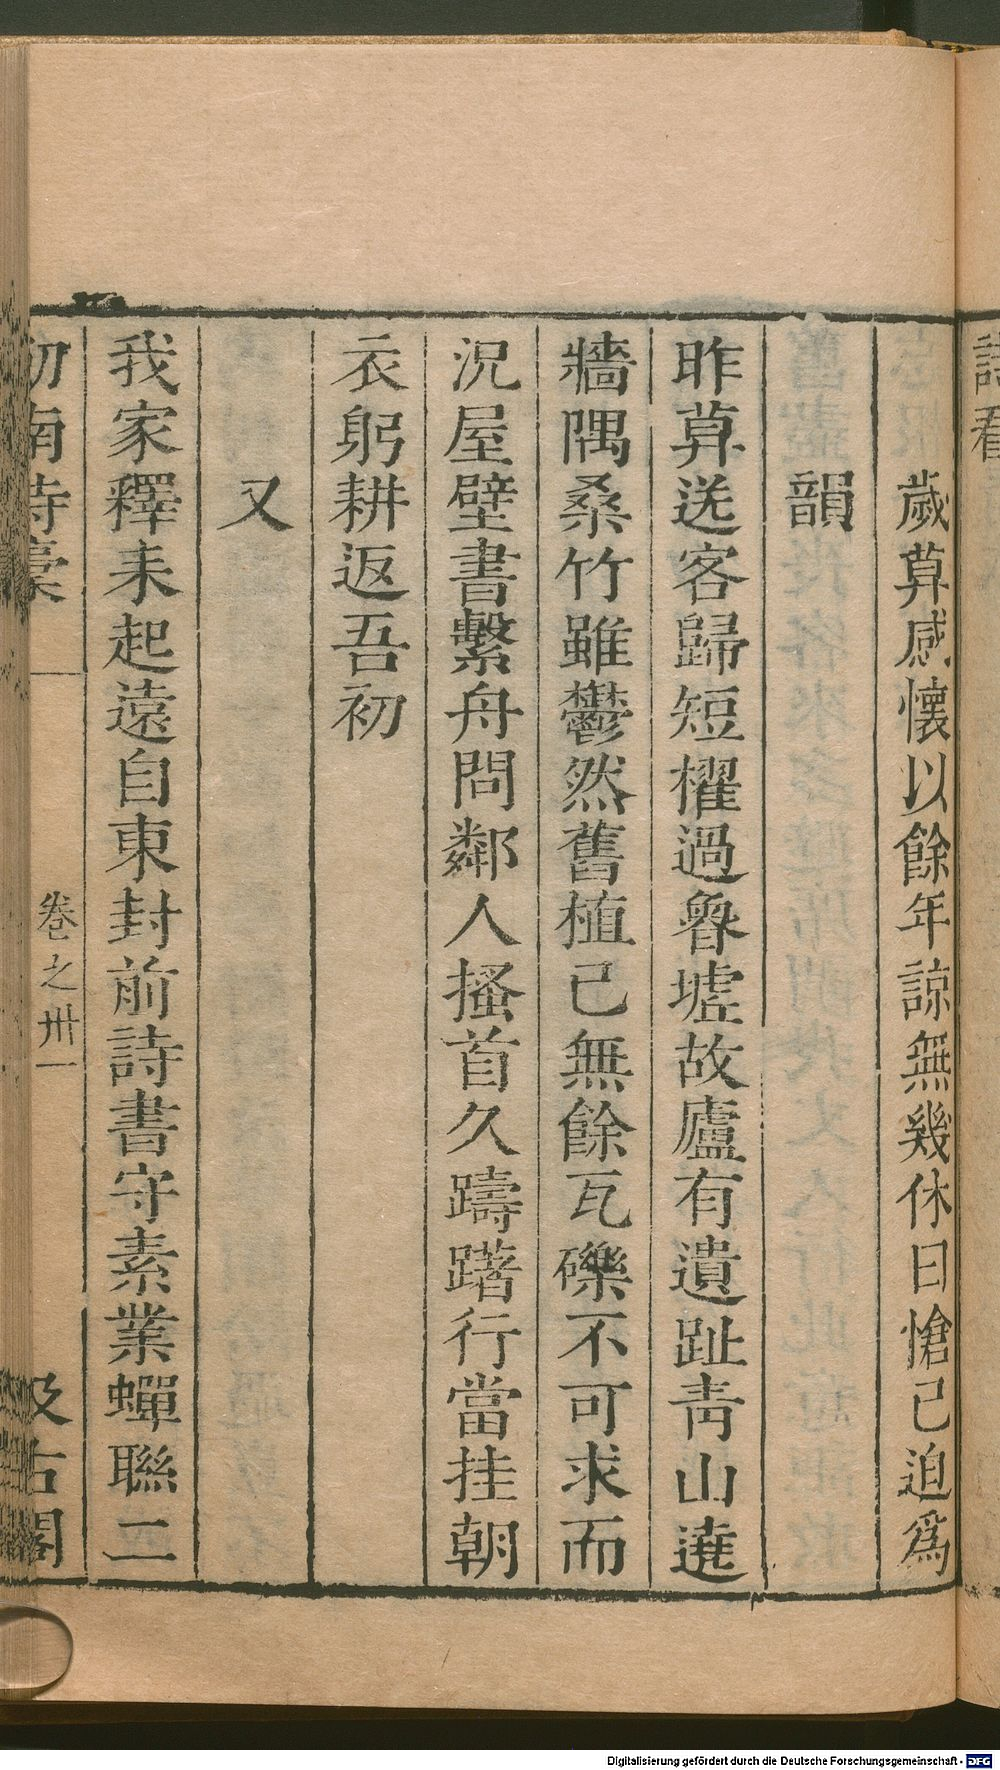 歲莫感懷以餘年諒無幾休日愴已迫爲
韻
昨莫送客歸短櫂過魯墟故廬有遺趾靑山遶
牆隅桑竹雖鬱然舊植已無餘瓦礫不可求而
況屋壁書繫舟問鄰人搔首久躊躇行當挂朝
衣躬耕返吾初
又
我家釋耒起遠自東封前詩書守素業蟬聯二
劒南詩稾
卷之卅一
汲古閣
Digitalisierung gefördert durch die Deutsche Forschungsgemeinschaft - DFG